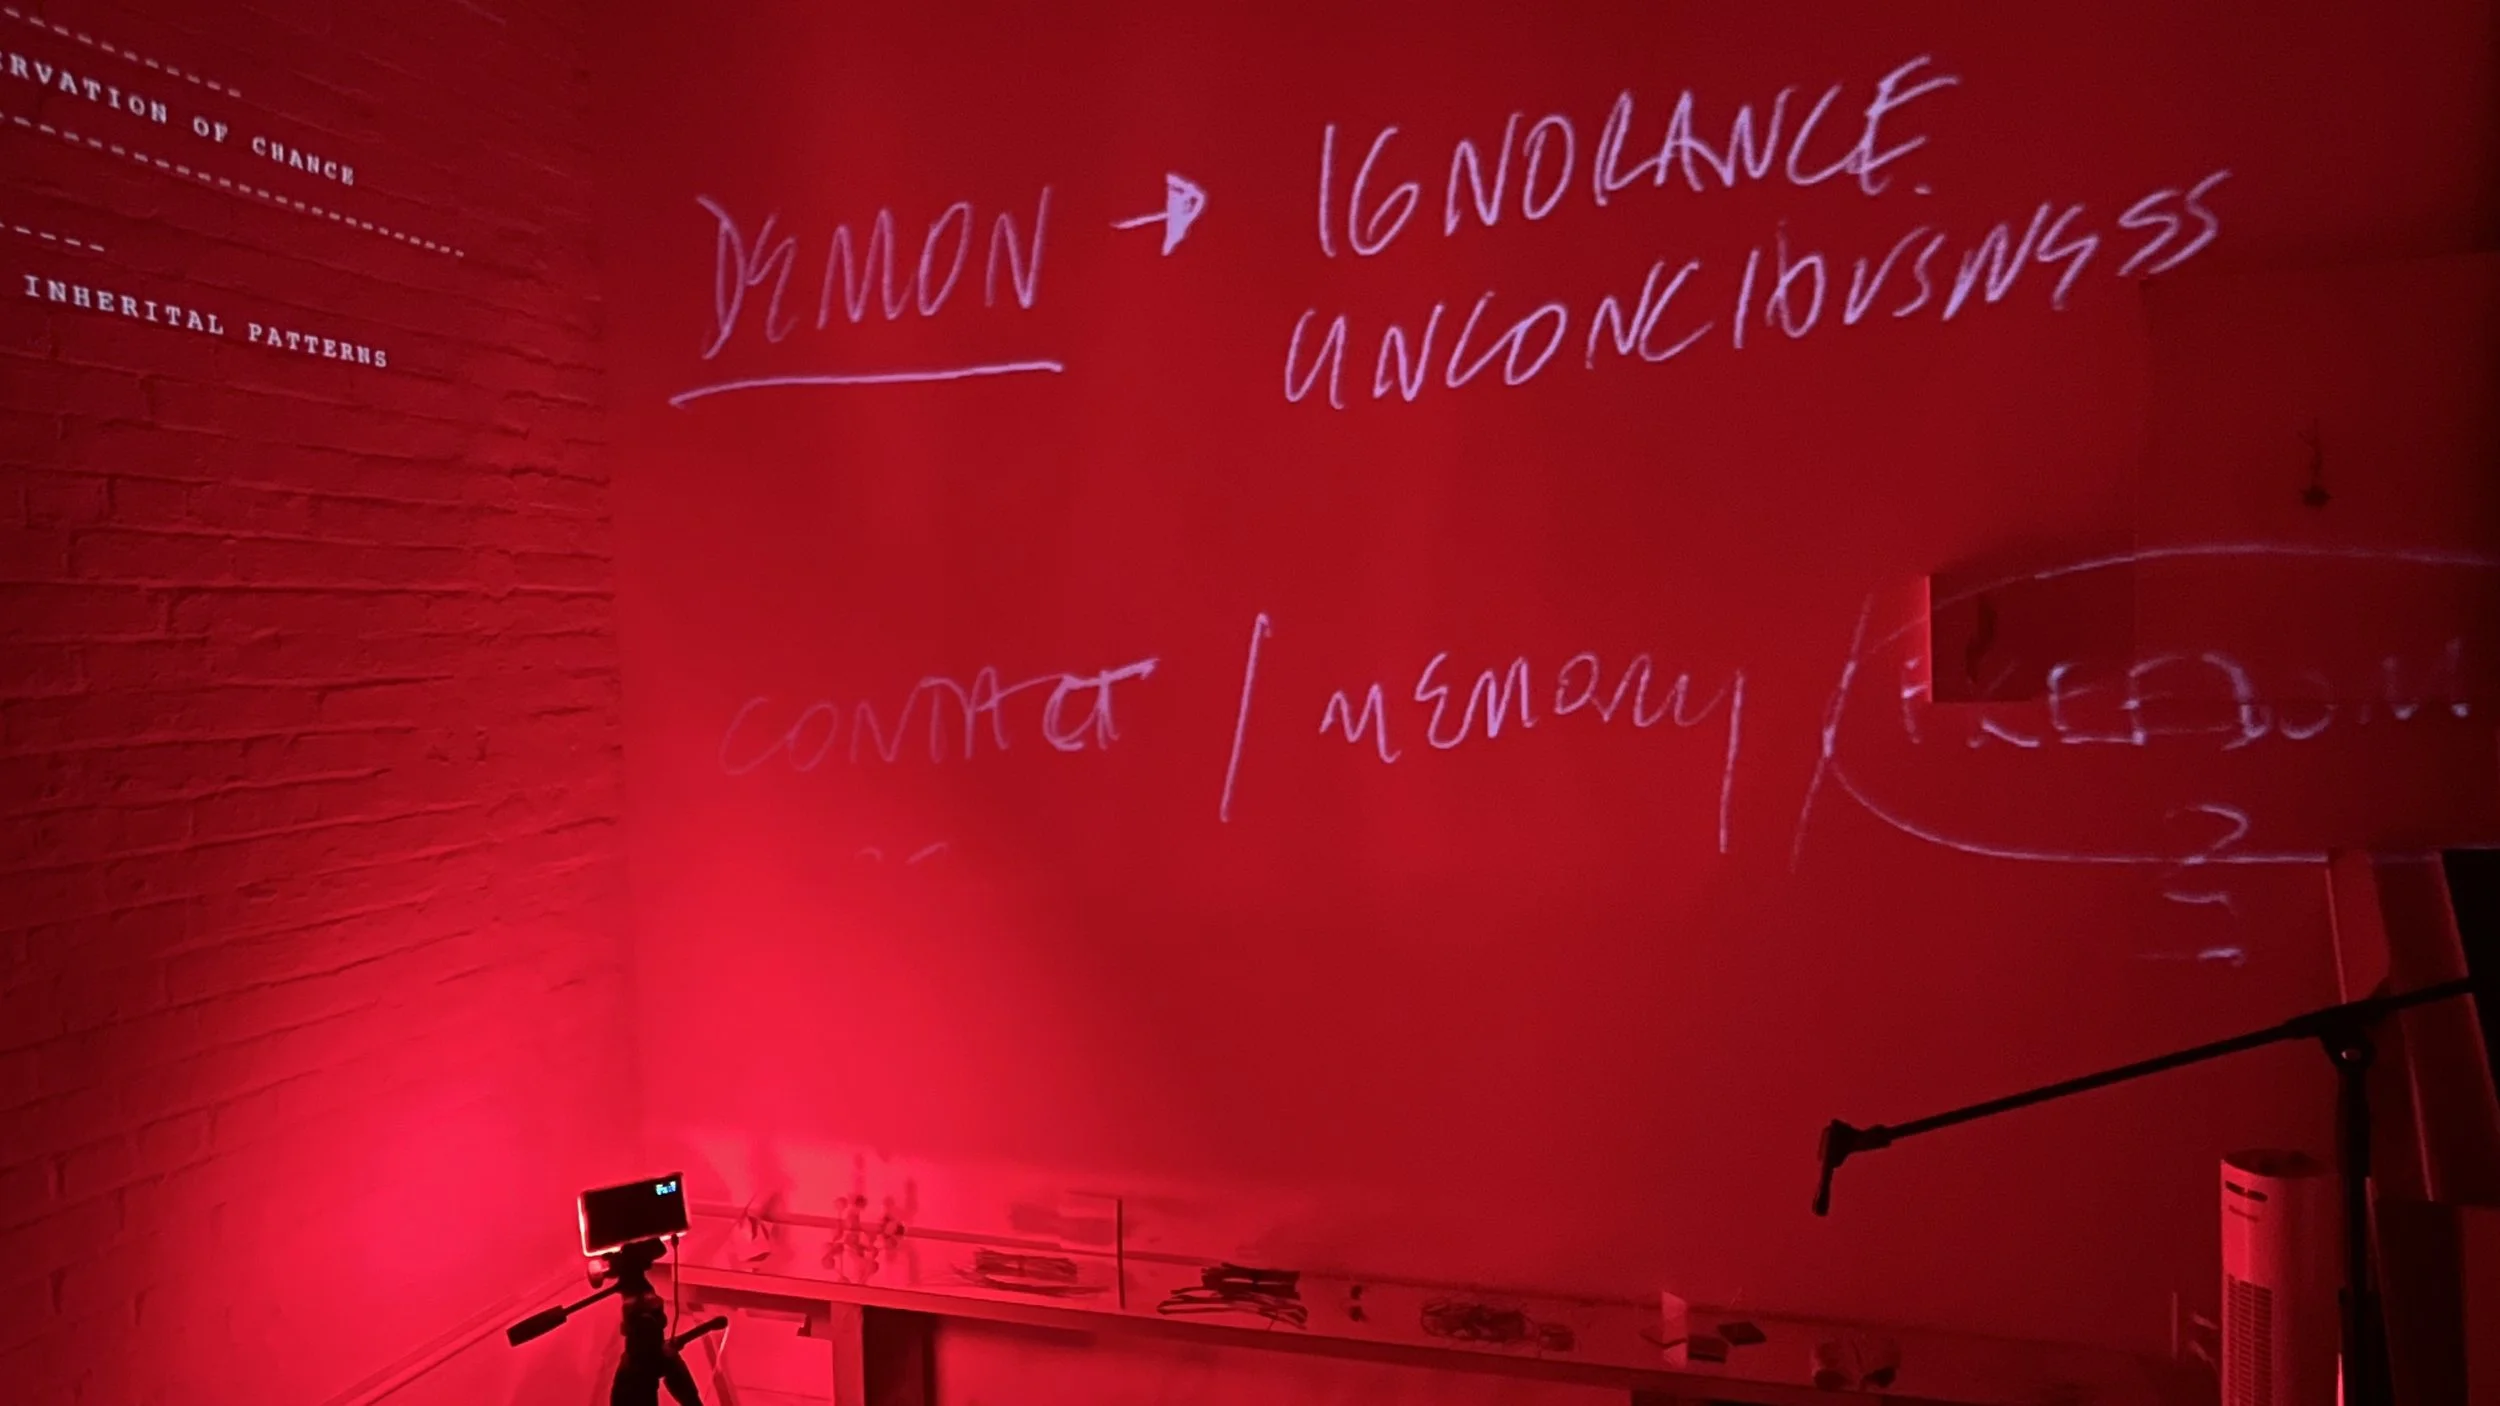 ERVATION OF CHANCE
INHERITAL PATTERNS
DEMON → IGNORANCE.
UNCONCIOUSNESS
CONTACT / MEMORY / FREEDOM
?